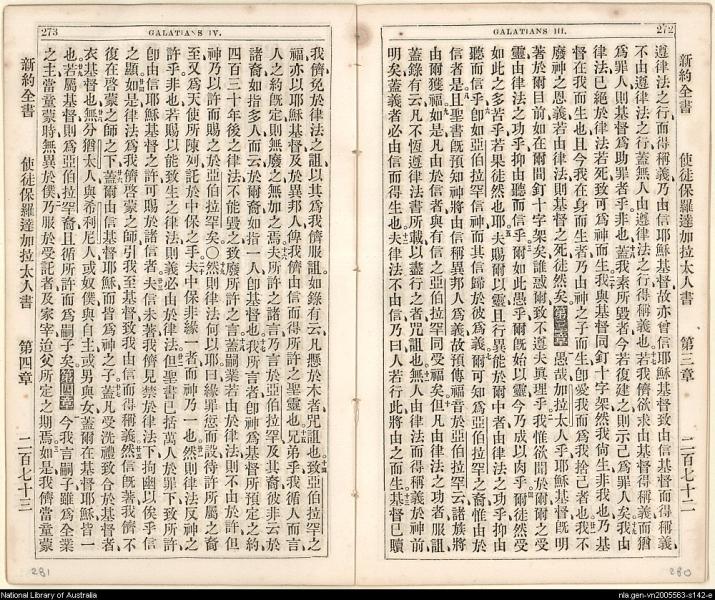 272
GALATIANS III.
新約全書 使徒保羅達加拉太人書 第三章 二百七十二
遵律法之行而得稱義乃由信耶穌基督故亦曾信耶穌基督致由信基督而得稱義而
不由遵律法之行蓋無人由遵律法之行得稱義也若我儕欲求由基督得稱義而猶
爲罪人則基督爲助罪者乎非也蓋我素所毀者今若復建之則示己爲罪人矣我由
律法已絕於律法若死致可爲神而生我與基督同釘十字架然我尙生非我也乃基
督在我而生也且今我在身而生者乃由神之子而生卽愛我而爲我捨己者也我不
廢神之恩義若由律法則基督之死徒然矣第三章愚哉加拉太人乎耶穌基督旣明
著於爾目前如在爾間釘十字架矣誰惑爾致不遵夫眞理乎我惟欲聞於爾爾之受
靈由律法之功乎抑由聽而信乎爾如此愚乎爾旣始以靈今乃成以肉乎爾徒然受
如此之多苦乎若果徒然也耶夫賜爾以靈且行異能於爾中者由律法之功乎抑由
聽而信乎卽如亞伯拉罕信神而其信歸於彼爲義爾可知爲亞伯拉罕之裔惟由於
信者是且聖書旣預知神將由信稱異邦人爲義故預傳福音於亞伯拉罕云諸族將
由爾獲福如是凡由於信者與有信之亞伯拉罕同受福矣但凡由律法之功者服詛
蓋錄有云凡不恆遵律法書所載以盡行之者咒詛也無人由律法而得稱義於神前
明矣蓋義者必由信而得生也夫律法不由信乃曰人若行此將由之而生基督已贖
GALATIANS IV.
273
我儕免於律法之詛以其爲我儕服詛如錄有云凡懸於木者咒詛也致亞伯拉罕之
福亦以耶穌基督及於異邦人俾我儕由信而得所許之聖靈也兄弟乎我循人而言
人之約旣定則無廢之無加之焉夫所許之諸言乃言於亞伯拉罕及其裔彼非云於
諸裔如指多人而云於爾裔如指一人卽基督也我所言者卽神爲基督所預定之約
四百三十年後之律法不能毀之致廢所許之言蓋嗣業若由於律法則不由於許但
神乃以許而賜之於亞伯拉罕矣○然則律法何以耶曰緣罪愆而設待許所屬之裔
至又爲天使所陳列託於中保之手夫中保非緣一者而神乃一也然則律法反神之
許乎非也若賜以能致生之律法則義必由於律法但聖書已括萬人於罪下致所許
卽由信耶穌基督之許可賜於諸信者夫信未著我儕見禁於律法下拘幽以俟乎信
之顯如是律法爲我儕啓蒙之師引我至基督致我由信而得稱義然信旣著我儕不
復在啓蒙之師之下蓋爾由信基督耶穌而皆爲神之子蓋凡受洗禮致合於基督者
衣基督也無分猶太人與希利尼人或奴僕與自主或男與女蓋爾在基督耶穌皆一
也若屬基督則爲亞伯拉罕裔且循所許而爲嗣子矣第四章今我言嗣子雖爲全業
之主當童蒙時無異於僕乃服於受託者及家宰迨父所定之期焉如是我儕當童蒙
新約全書 使徒保羅達加拉太人書 第四章 二百七十三
281
280
National Library of Australia
nla.gen-vn2005563-s142-e